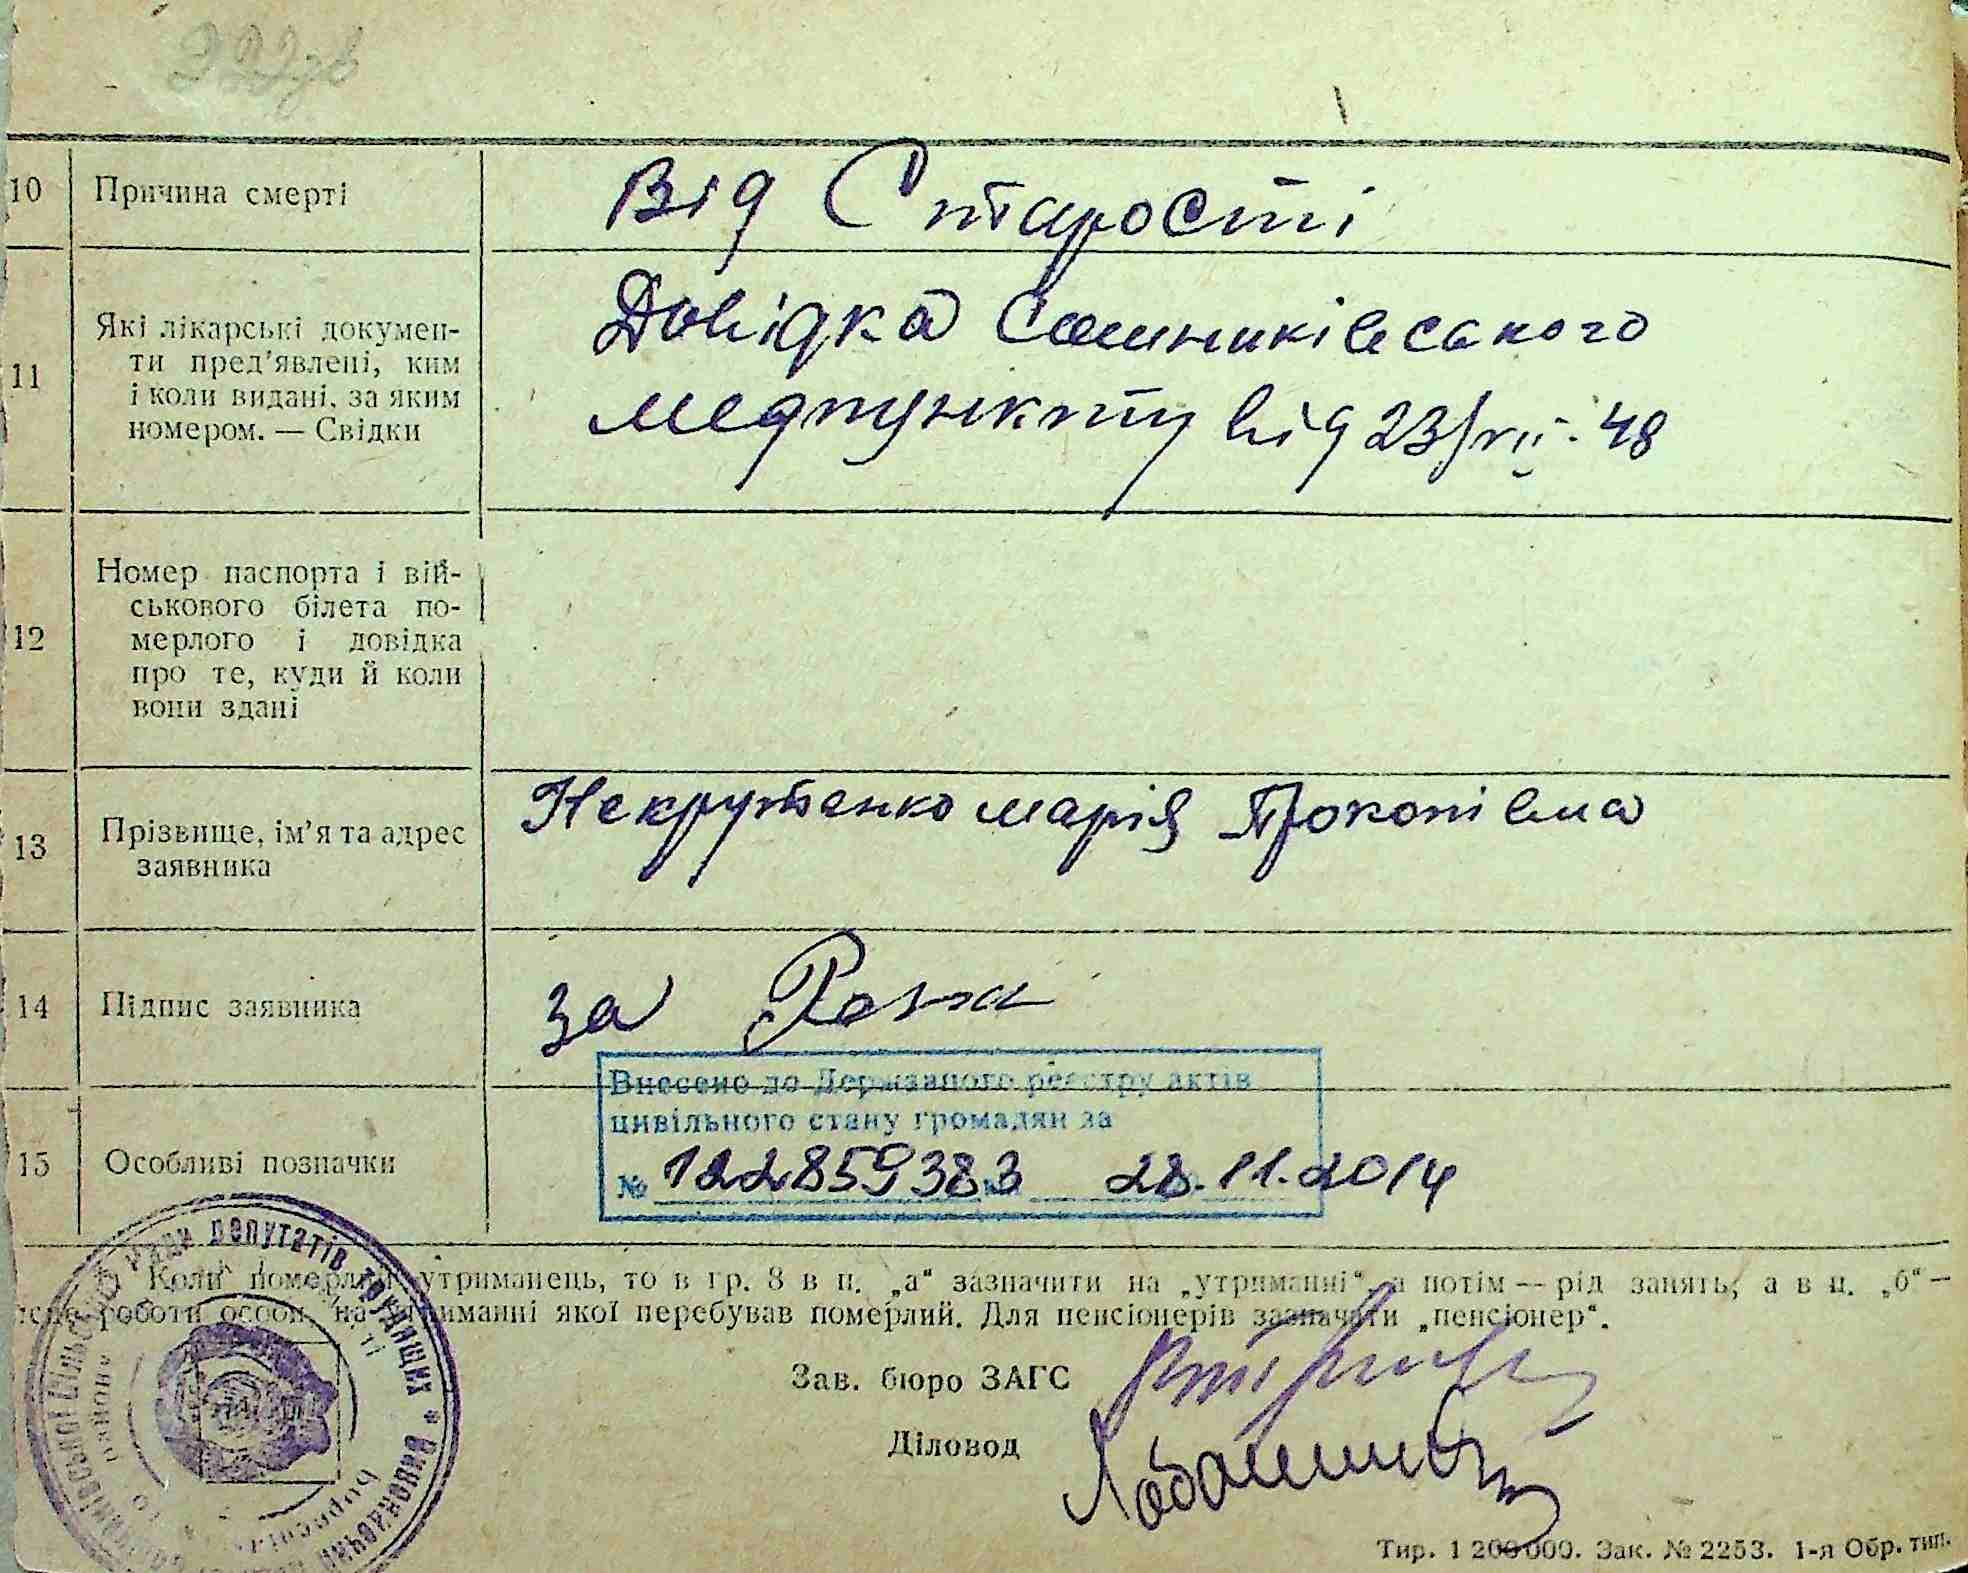 10 Причина смерті Від Старості
11 Які лікарські докумен-
ти пред'явлені, ким
і коли видані, за яким
номером. — Свідки
Довідка Сошниківського
медпункту від 23/VII-48
12 Номер паспорта і вій-
ськового білета по-
мерлого і довідка
про те, куди й коли
вони здані
13 Прізвище, ім'я та адрес
заявника
Некрутенко марія Прокопівна
14 Підпис заявника за
Внесено до Державного реєстру актів
цивільного стану громадян за
№ 122859383 28.11.2014
15 Особливі позначки
Коли померлий утриманець, то в гр. 8 в п. „а“ зазначити на „утриманні“, а потім — рід занять, а в п. „б“ —
роботи особи, на утриманні якої перебував померлий. Для пенсіонерів зазначати „пенсіонер“.
Зав. бюро ЗАГС
Діловод
Ради депутатів трудящих * Виконавчий
Тир. 1 200 000. Зак. № 2253. 1-я Обр. тип.